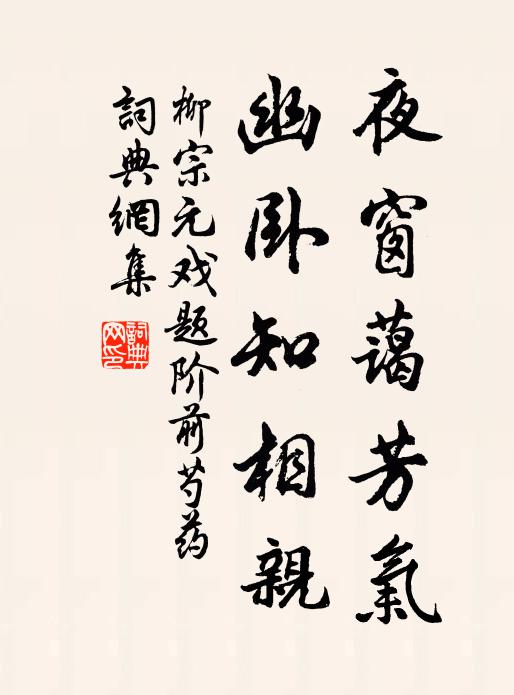 夜窗藹芳氣
幽卧知相親
柳宗元戏题阶前芍药
詞典網集
詞典
网印